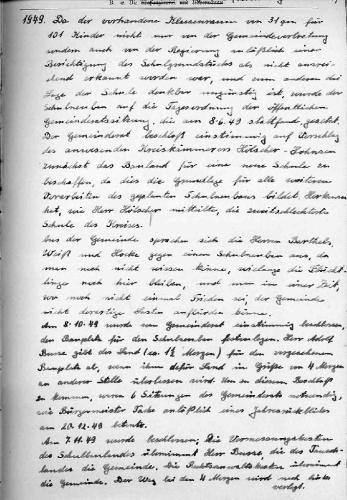 1949. Da der vorhandene Klassenraum von 31 qm für
101 Kinder nicht nur von der Gemeindevertretung
sondern auch von der Regierung anläßlich einer
Besichtigung des Schulgrundstücks als nicht ausrei-
chend erkannt worden war, und zum anderen die
Lage der Schule denkbar ungünstig ist, wurde der
Schulneubau auf die Tagesordnung der öffentlichen
Gemeinderatssitzung, die am 8.6.49 stattfand, gesetzt.
Der Gemeinderat beschloß einstimmig auf Vorschlag
des anwesenden Kreiskämmerers Hölscher-
zunächst das Bauland für eine neue Schule zu
beschaffen, da dies die Grundlage für alle weiteren
Vorarbeiten des geplanten Schulneubaus bildet.
hat, wie Herr Hölscher mitteilte, die zweitschlechteste
Schule des Kreises.
Aus der Gemeinde sprachen sich die Herren Barthels,
Weiß und Hocke gegen einen Schulneubau aus, da
man noch nicht wissen könne, wielange die Flücht-
linge noch hier bleiben, und man in einer Zeit,
wo noch nicht einmal Frieden sei, der Gemeinde
nicht derartige Lasten aufbürden könne.
Am 8.10.49 wurde vom Gemeinderat einstimmig beschlossen,
den Bauplatz für den Schulneubau festzulegen. Herr Adolf
Busse gibt das Land (ca. 1½ Morgen) für den vorgesehenen
Bauplatz ab, wenn ihm dafür Land in Größe von 4 Morgen
an anderer Stelle überlassen wird. Um zu diesem Beschluß
zu kommen, waren 6 Sitzungen des Gemeinderats notwendig,
wie Bürgermeister Tacke anläßlich eines Jahresrückblickes
am 20.12.49 betonte.
Am 7.11.49 wurde beschlossen: Die Vermessungskosten
des Schulbaulandes übernimmt Herr Busse, die des Tausch-
landes die Gemeinde. Die Rechtsanwaltskosten übernimmt
die Gemeinde. Der Weg bei den 4 Morgen wird nach
verlegt.